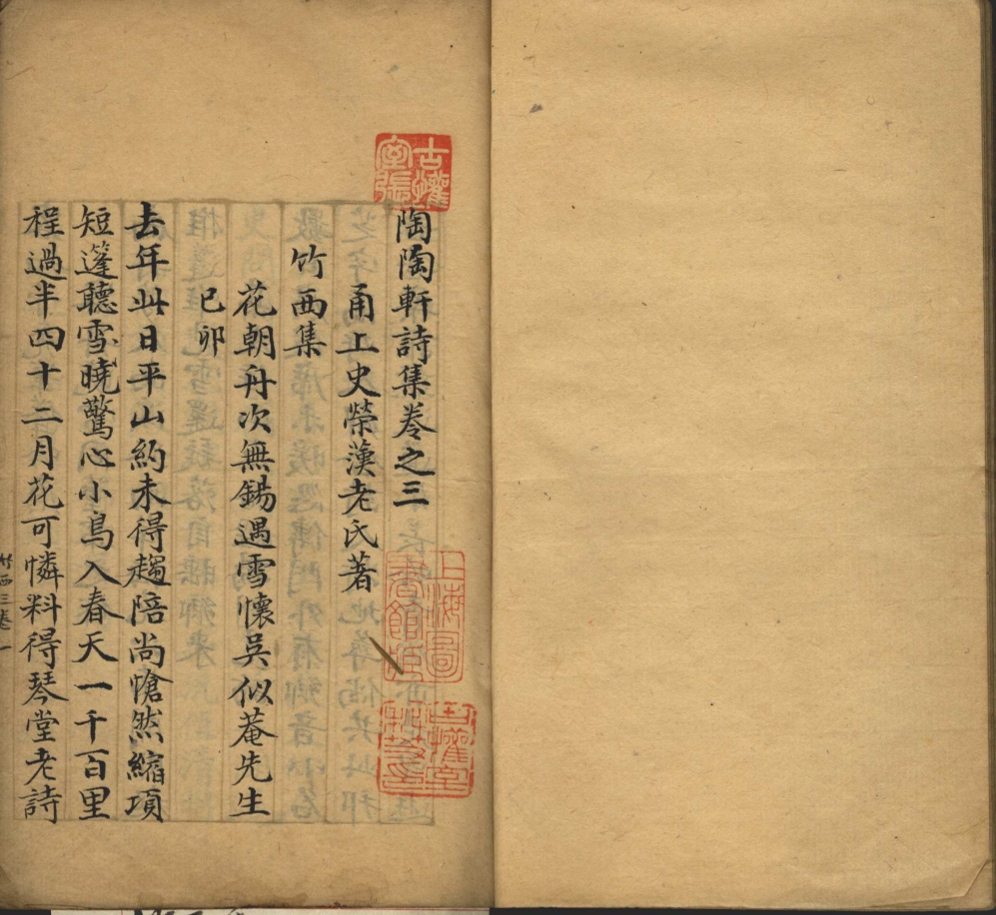 陶陶軒詩集卷之三
甬上史榮漢老氏著
竹西集
花朝舟次無錫遇雪懷吳似菴先生
已卯
去年此日平山約未得趨陪尚愴然縮項
短篷聽雪曉驚心小鳥入春天一千百里
程過半四十二月花可憐料得琴堂老詩
古懽
室張
上海圖
書館
古懽堂
竹西三卷一